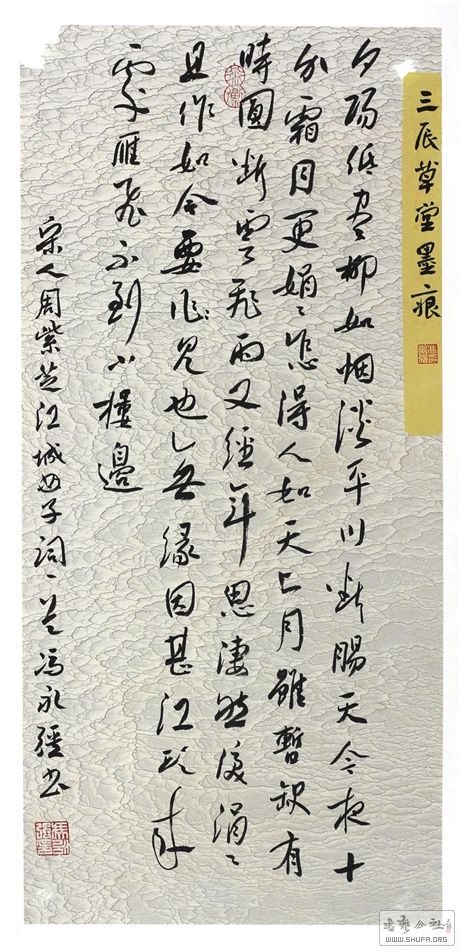 三辰草堂墨痕
夕陽低盡柳如烟淡平川斷腸天今夜十
分霜月更娟〻怎得人如天上月雖暫缺有
時圓斷雲飛雨又經年思淒然淚涓〻
且作如今要見也無緣因甚江頭來
處雁飛不到小樓邊
宋人周紫芝江城子詞一首馮永強書
WWW.SHUFA.ORG